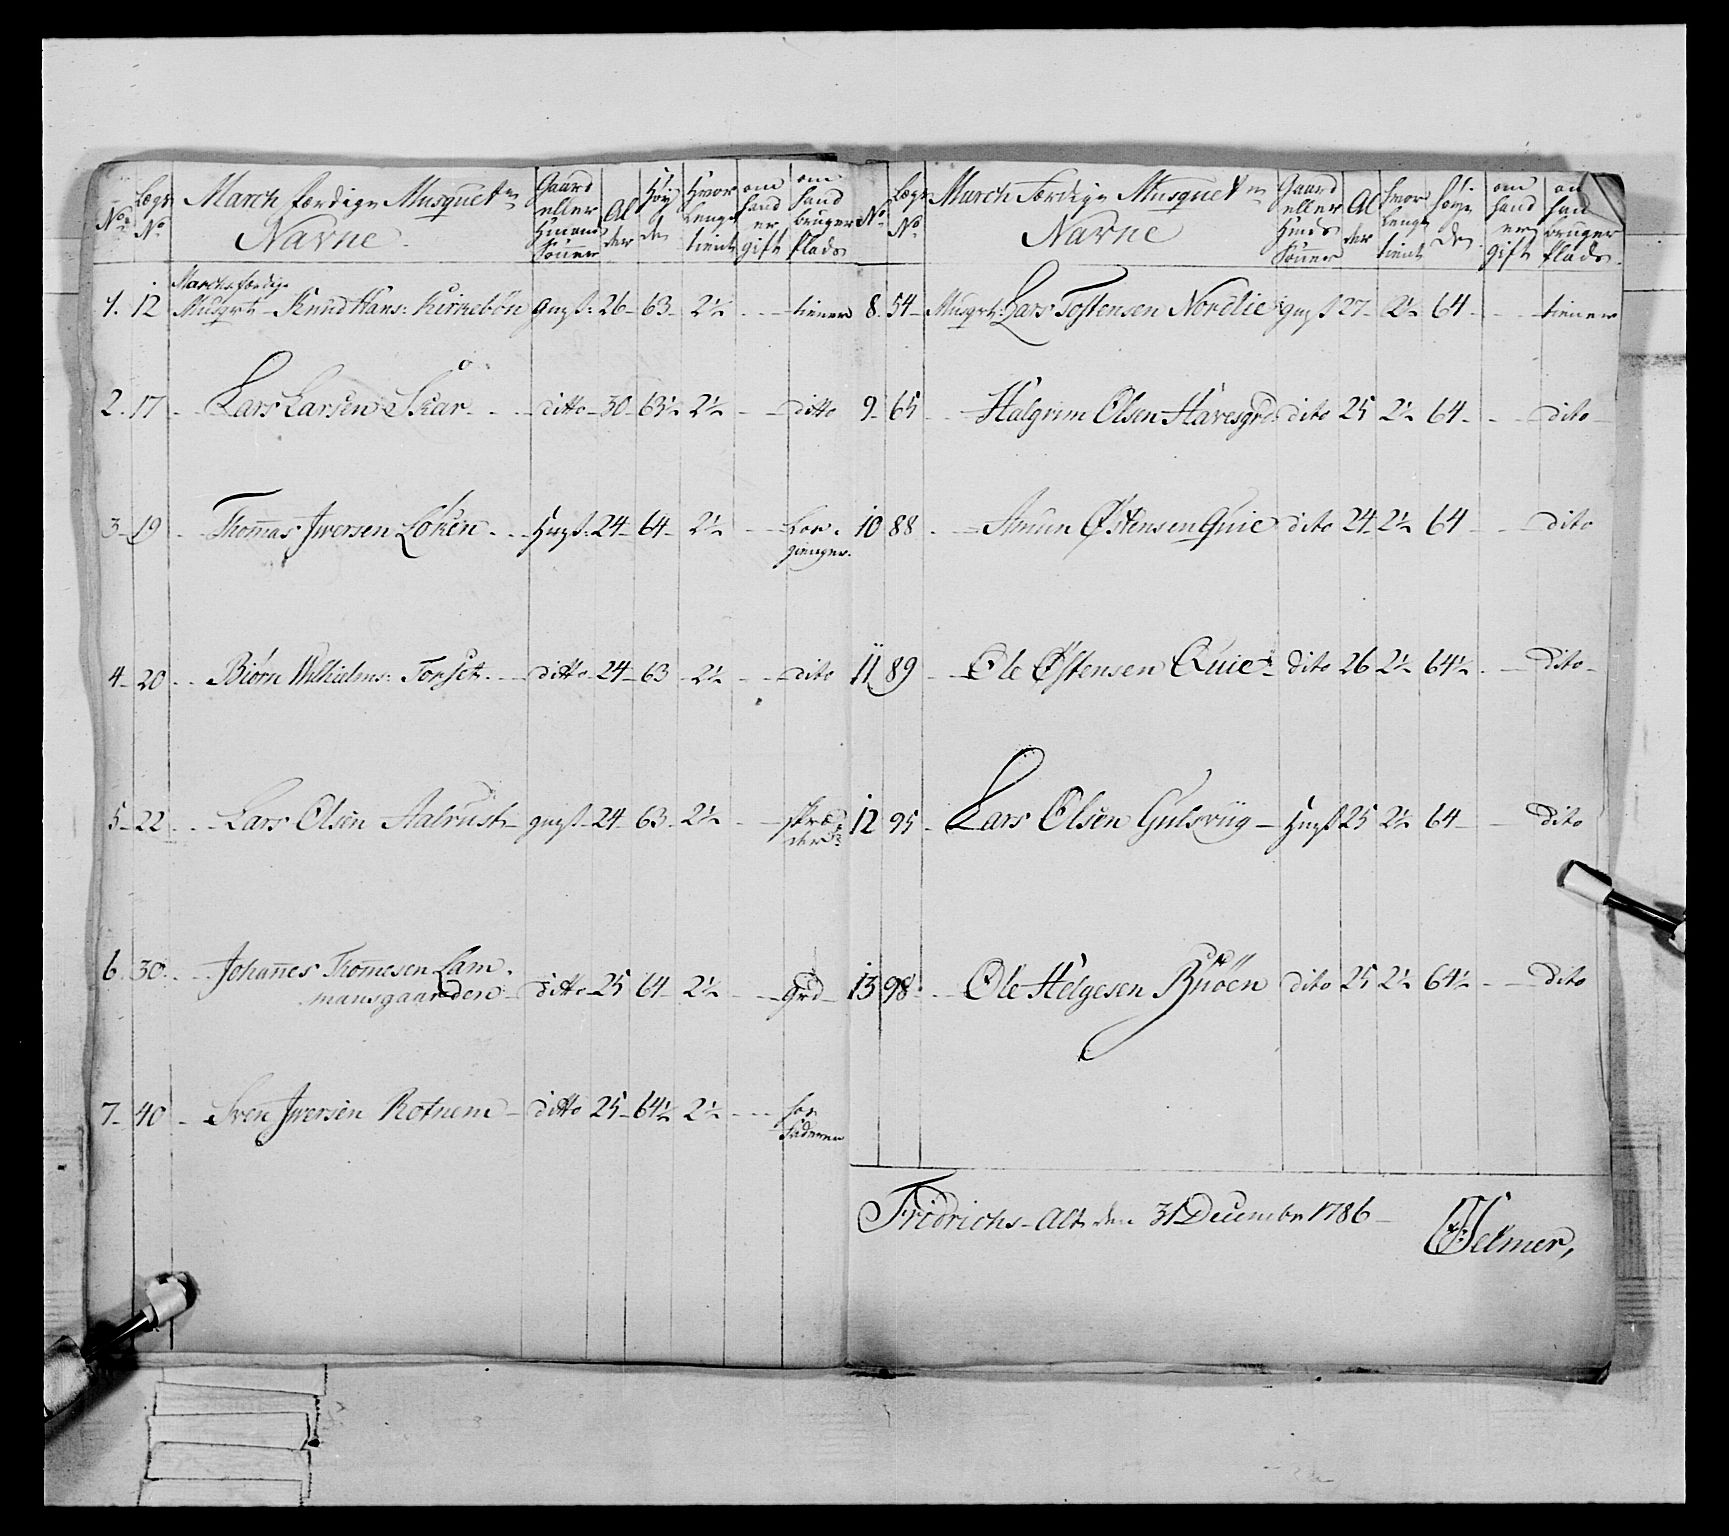 No. Lægs No. March færdige Musquetr Navne Gaard eller Huusmd Sönner Alder Høyde Hvor lenge tient om hand er gift om hand bruger Plads
Marchfærdige
1. 12 Musqrt Knud Hans: Kirkebön 26 63 2½ tiener
2. 17 Lars Larsen Skar ditto 30 63½ 2½ ditto
3 19 Thomas Iversen Löken 24 64 2½
4 20 Biörn Wilhielms: Torset ditto 24 63 2½ dito
5 22 Lars Olsen Aalrust 24 63 2½ skræder
6 30 Johannes Thomesen Lam
mansgaarden ditto 25 64 2½ Grd
7 40 Sven Iversen Rotnem ditto 25 64½ 2½
No. Lægs No. March færdige Musquetr Navne Gaard eller Huusmds Sönner Alder Hvor lenge tient Høyde om hand er gift om han bruger Plads
8 54 Musqrt: Lars Tostensen Nordlie 27 2½ 64 tiener
9 65 Halgrim Olsen Havesgrd dito 25 2½ 64 dito
10 88 Amun Østensen Quie dito 24 2½ 64 dito
11 89 Ole Østensen Quie dito 26 2½ 64½ dito
12 95 Lars Olsen Gulsviig 25 2½ 64 dito
13 98 Ole Helgesen Buöen dito 25 2½ 64½ dito
Fridrichs-Alt den 31 Decembr 1786